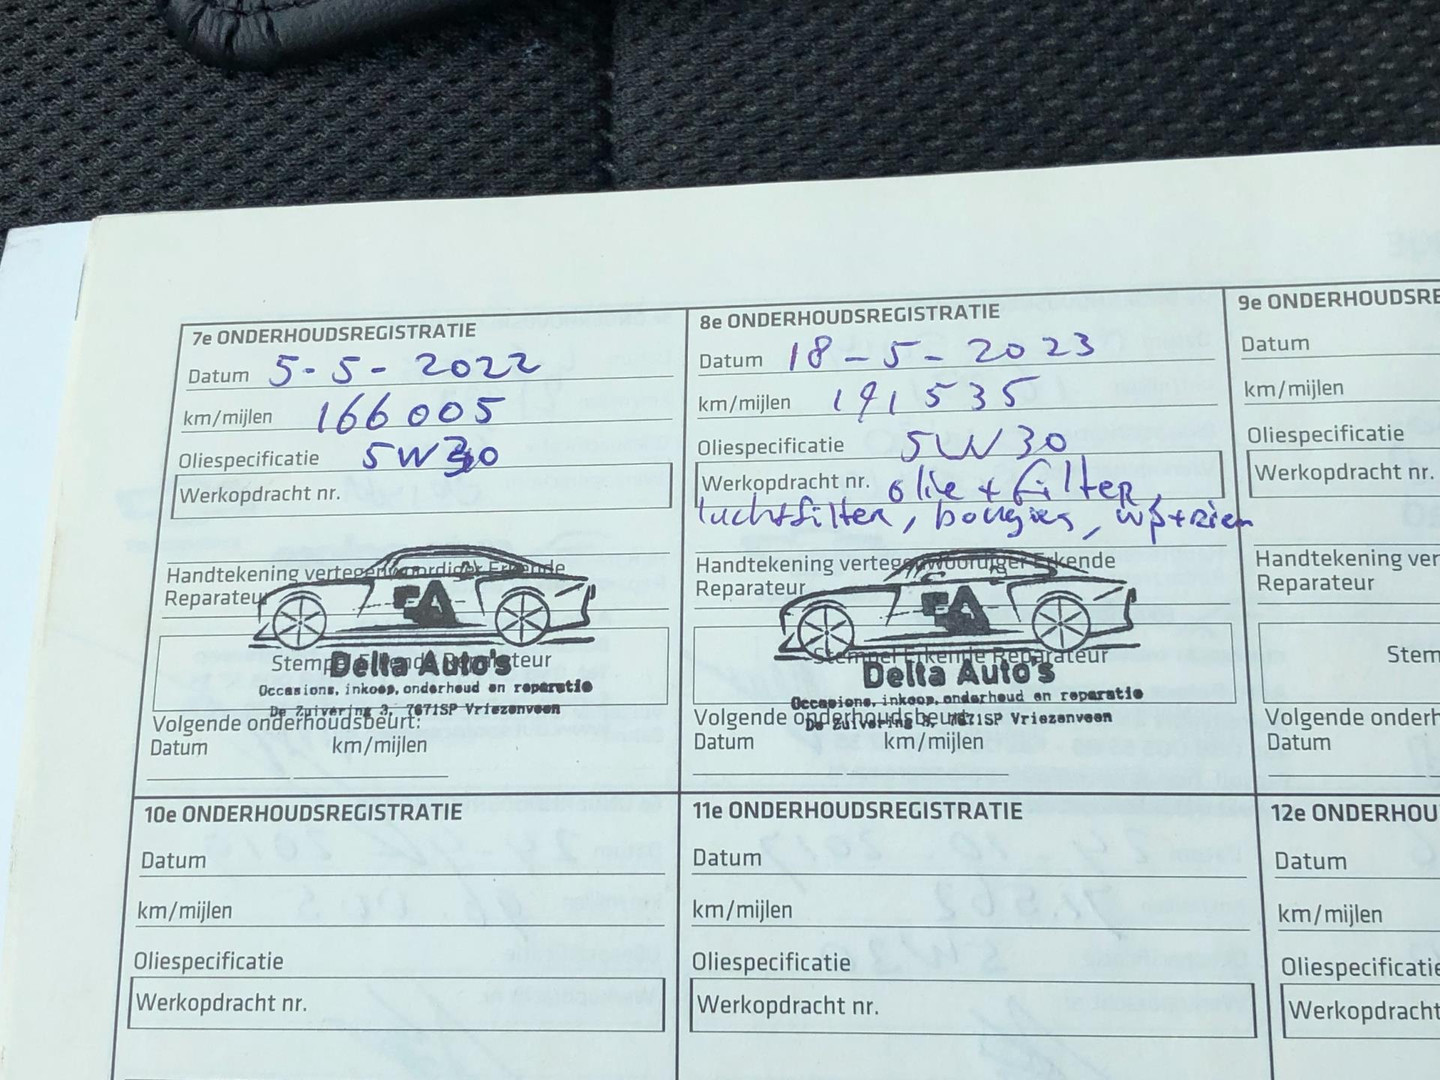 7e ONDERHOUDSREGISTRATIE
Datum 5-5-2022
km/mijlen 166005
Oliespecificatie 5W30
Werkopdracht nr.
Handtekening vertegenwoordiger Erkende
Reparateur
Stempel Erkende Reparateur
Delta Auto's
Occasions, inkoop, onderhoud en reparatie
De Zuivering 3, 7671SP Vriezenveen
Volgende onderhoudsbeurt:
Datum km/mijlen
8e ONDERHOUDSREGISTRATIE
Datum 18-5-2023
km/mijlen 191535
Oliespecificatie 5W30
Werkopdracht nr. olie + filter,
luchtfilter, bougies,
Handtekening vertegenwoordiger Erkende
Reparateur
Stempel Erkende Reparateur
Delta Auto's
Occasions, inkoop, onderhoud en reparatie
De Zuivering 3, 7671SP Vriezenveen
Volgende onderhoudsbeurt:
Datum km/mijlen
9e ONDERHOUDSRE
Datum
km/mijlen
Oliespecificatie
Werkopdracht nr.
Handtekening ver
Reparateur
Stem
Volgende onderh
Datum
10e ONDERHOUDSREGISTRATIE
Datum
km/mijlen
Oliespecificatie
Werkopdracht nr.
11e ONDERHOUDSREGISTRATIE
Datum
km/mijlen
Oliespecificatie
Werkopdracht nr.
12e ONDERHOU
Datum
km/mijlen
Oliespecificatie
Werkopdracht